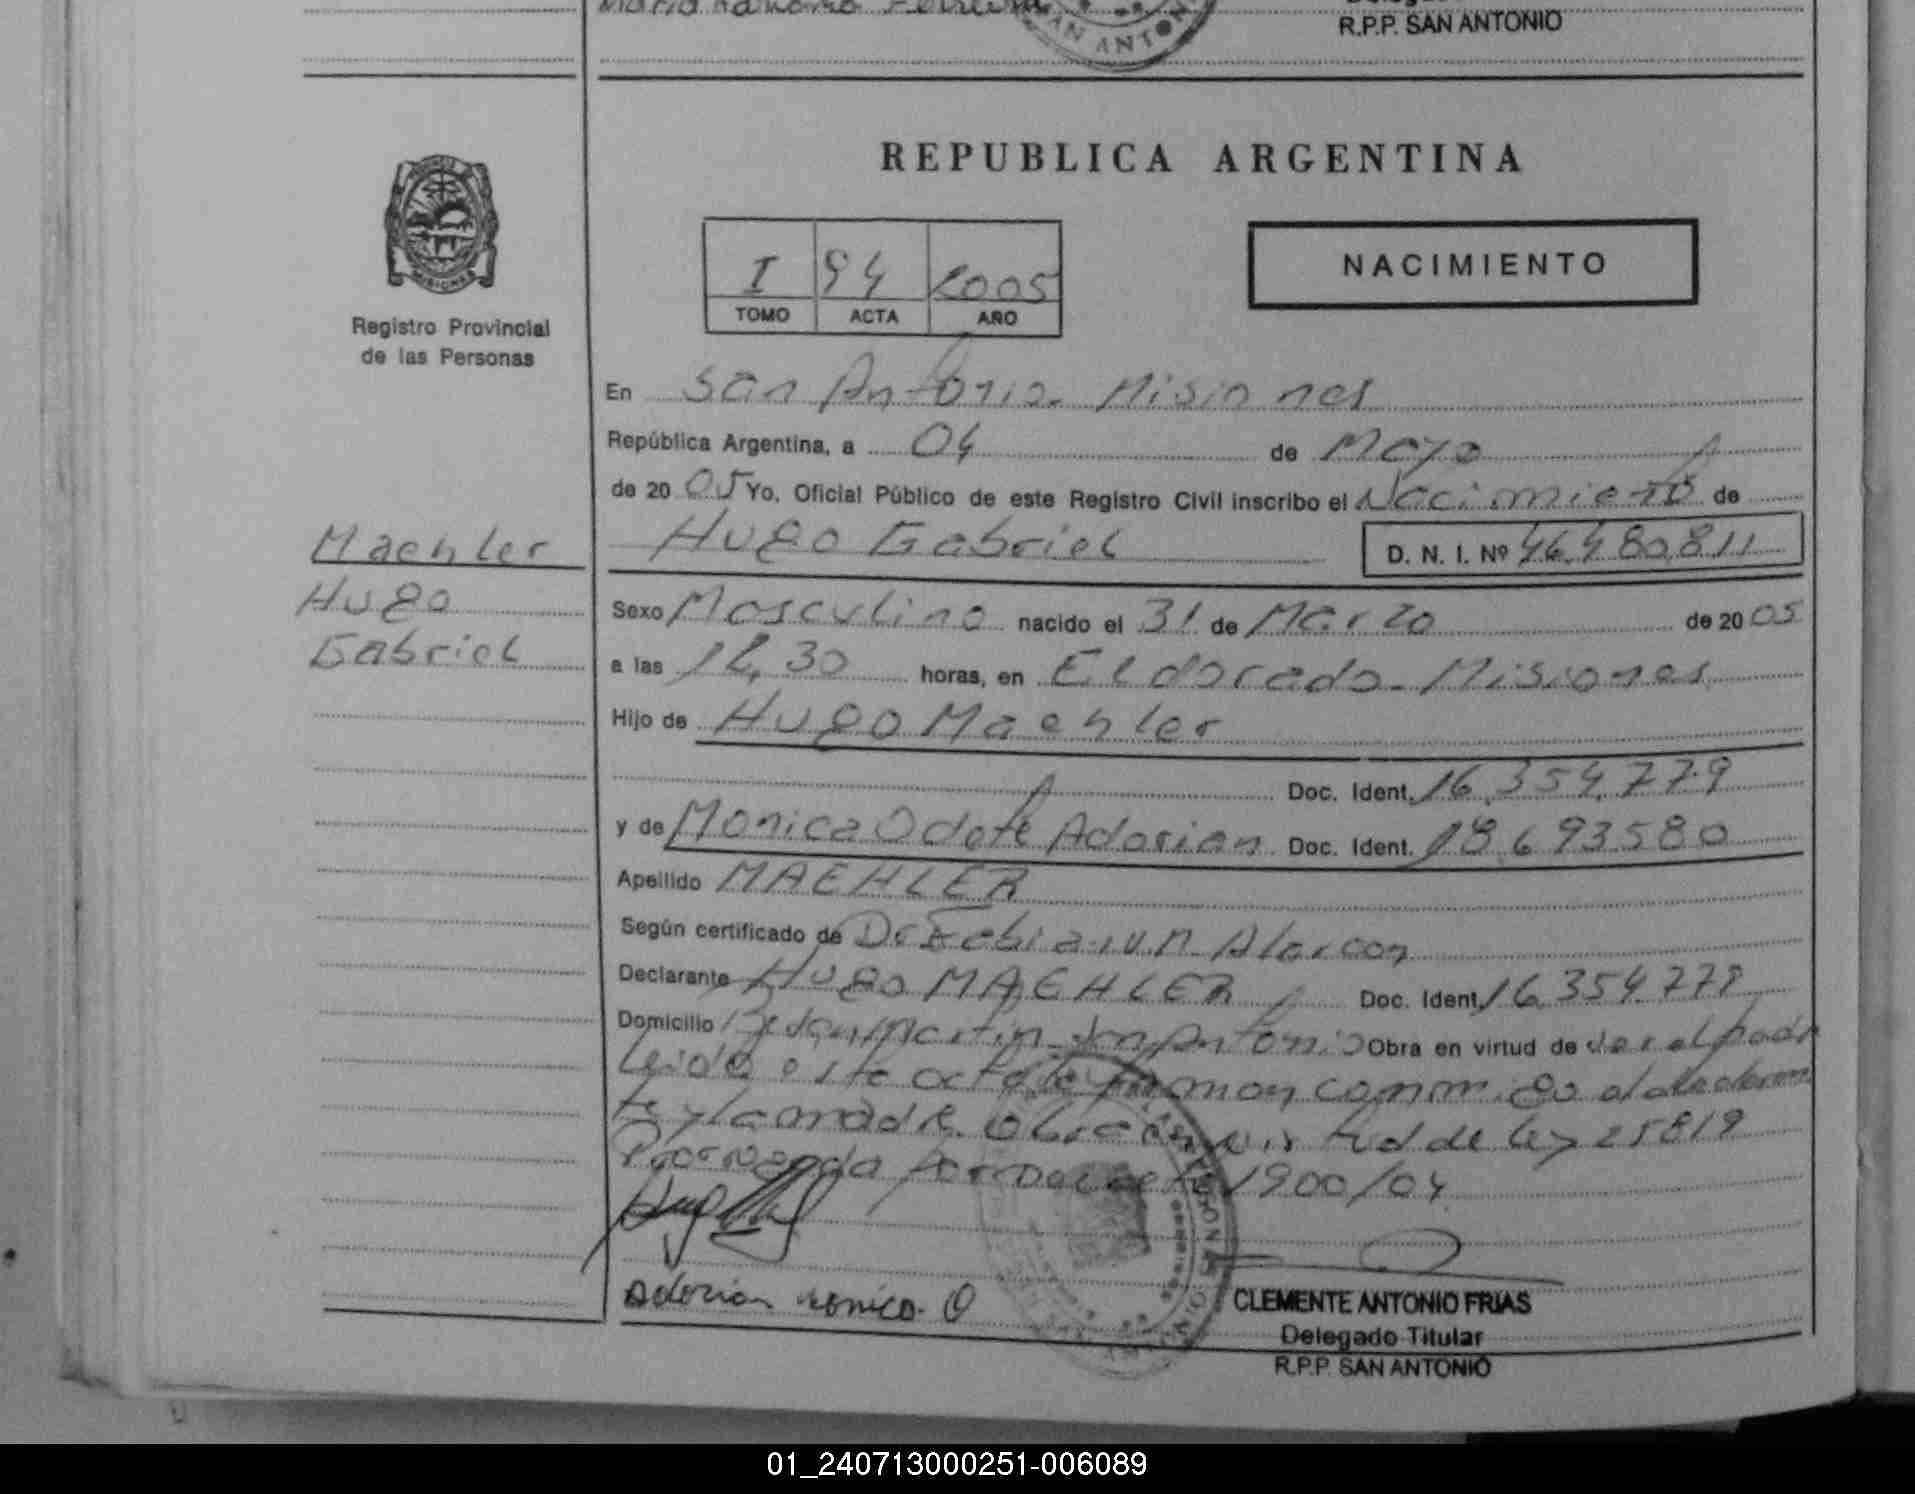 R.P.P. SAN ANTONIO
SAN ANTON
REPUBLICA ARGENTINA
MISIONES
Registro Provincial
de las Personas
I 94 2005
TOMO ACTA AÑO
NACIMIENTO
En San Antonio Misiones
República Argentina, a 04 de Mayo
de 20 05 Yo, Oficial Público de este Registro Civil inscribo el Nacimiento de
Maehler
Hugo
Gabriel
Hugo Gabriel D. N. I. Nº 46.480.811
Sexo Masculino nacido el 31 de Marzo de 20 05
a las 12,30 horas, en Eldorado - Misiones
Hijo de Hugo Maehler
Doc. Ident. 16.354.779
y de Monica Odete Adorian Doc. Ident. 18.693580
Apellido MAEHLER
Según certificado de Dr Fabian Alarcon
Declarante Hugo MAEHLER Doc. Ident. 16.354779
Domicilio San Antonio Obra en virtud de ser el padre
Leida este acta la firman conmigo el declaran
te y la madre. Obra en virtud de ley 25819
Prorrogada por Decreto 1900/04
Adorian Monica O
CLEMENTE ANTONIO FRIAS
Delegado Titular
R.P.P. SAN ANTONIO
01_240713000251-006089